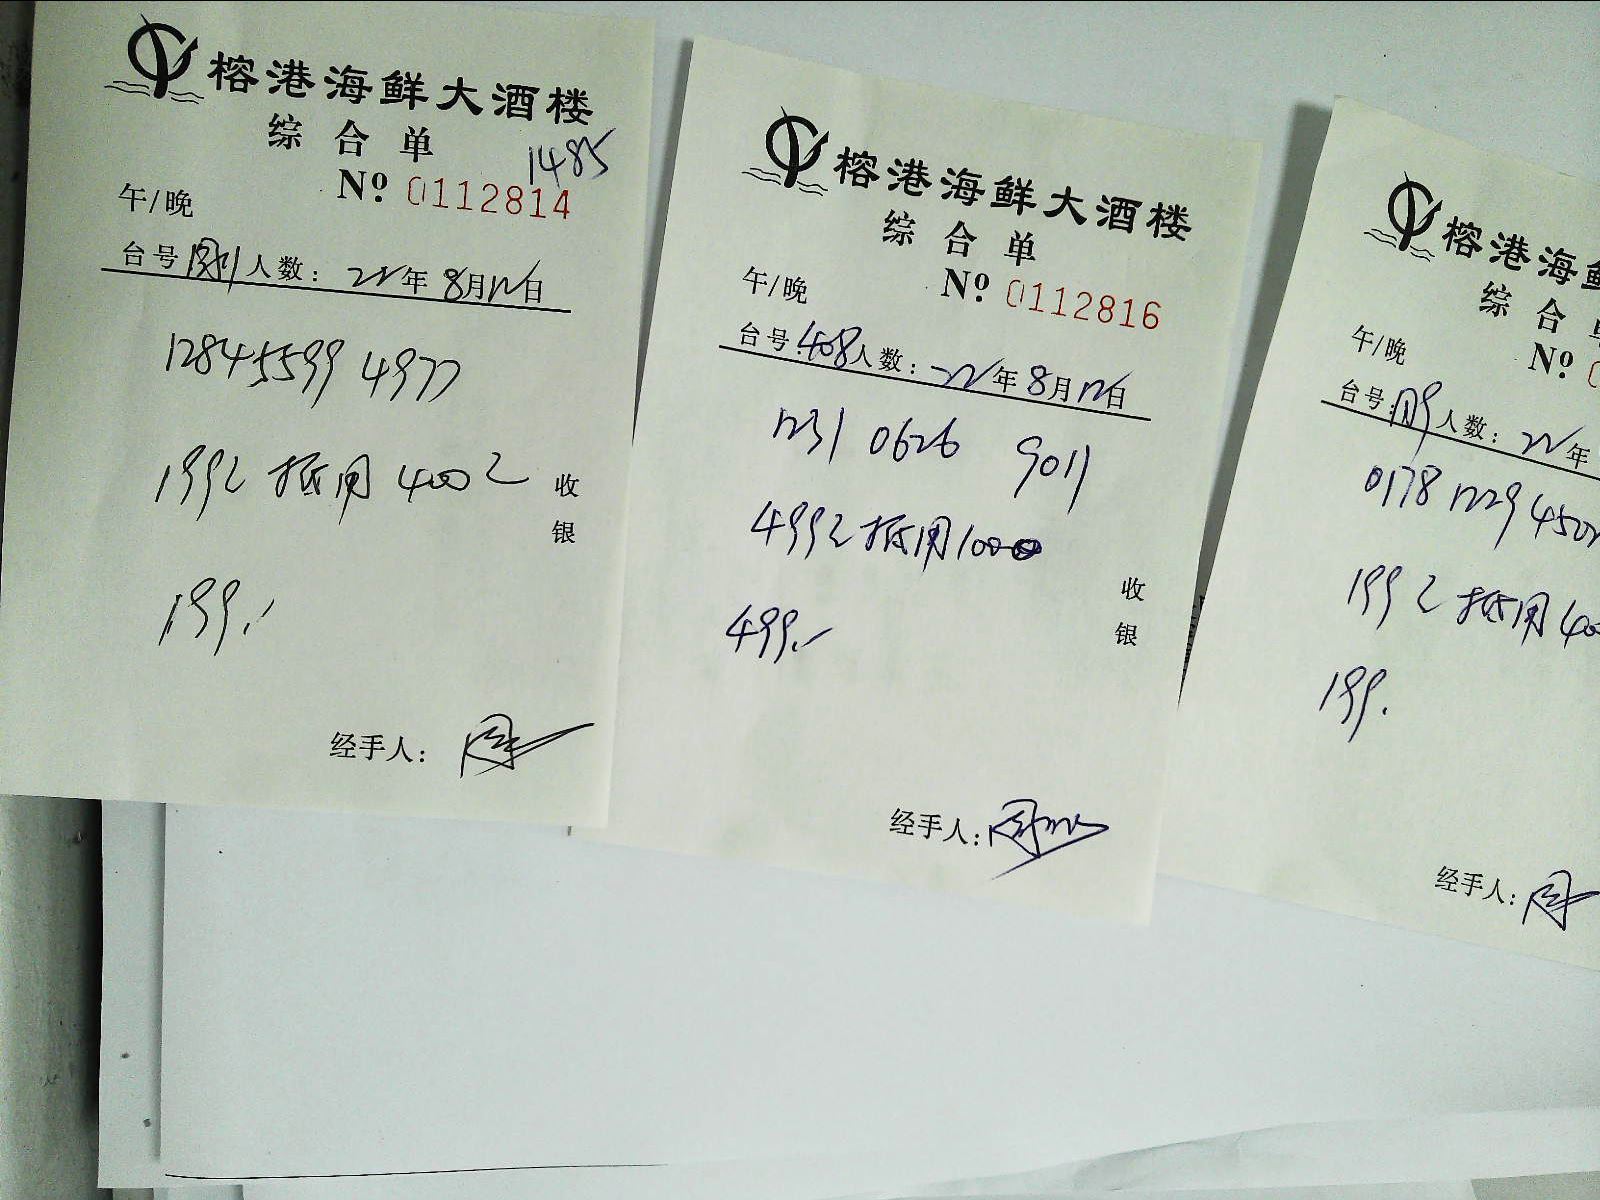 榕港海鲜大酒楼
综合单
1485
No 0112814
午/晚
台号 人数: 22年 8月12日
12845599 4977
199元 抵用 400元
收银
199.-
经手人:
榕港海鲜大酒楼
综合单
No 0112816
午/晚
台号: 408 人数: 22年 8月12日
1231 0626 9011
499元抵用1000
收银
499.-
经手人:
榕港海鲜
综合
No 0
午/晚
台号: 人数: 22年
0178 1229 450
199元 抵用 400
199.
经手人: